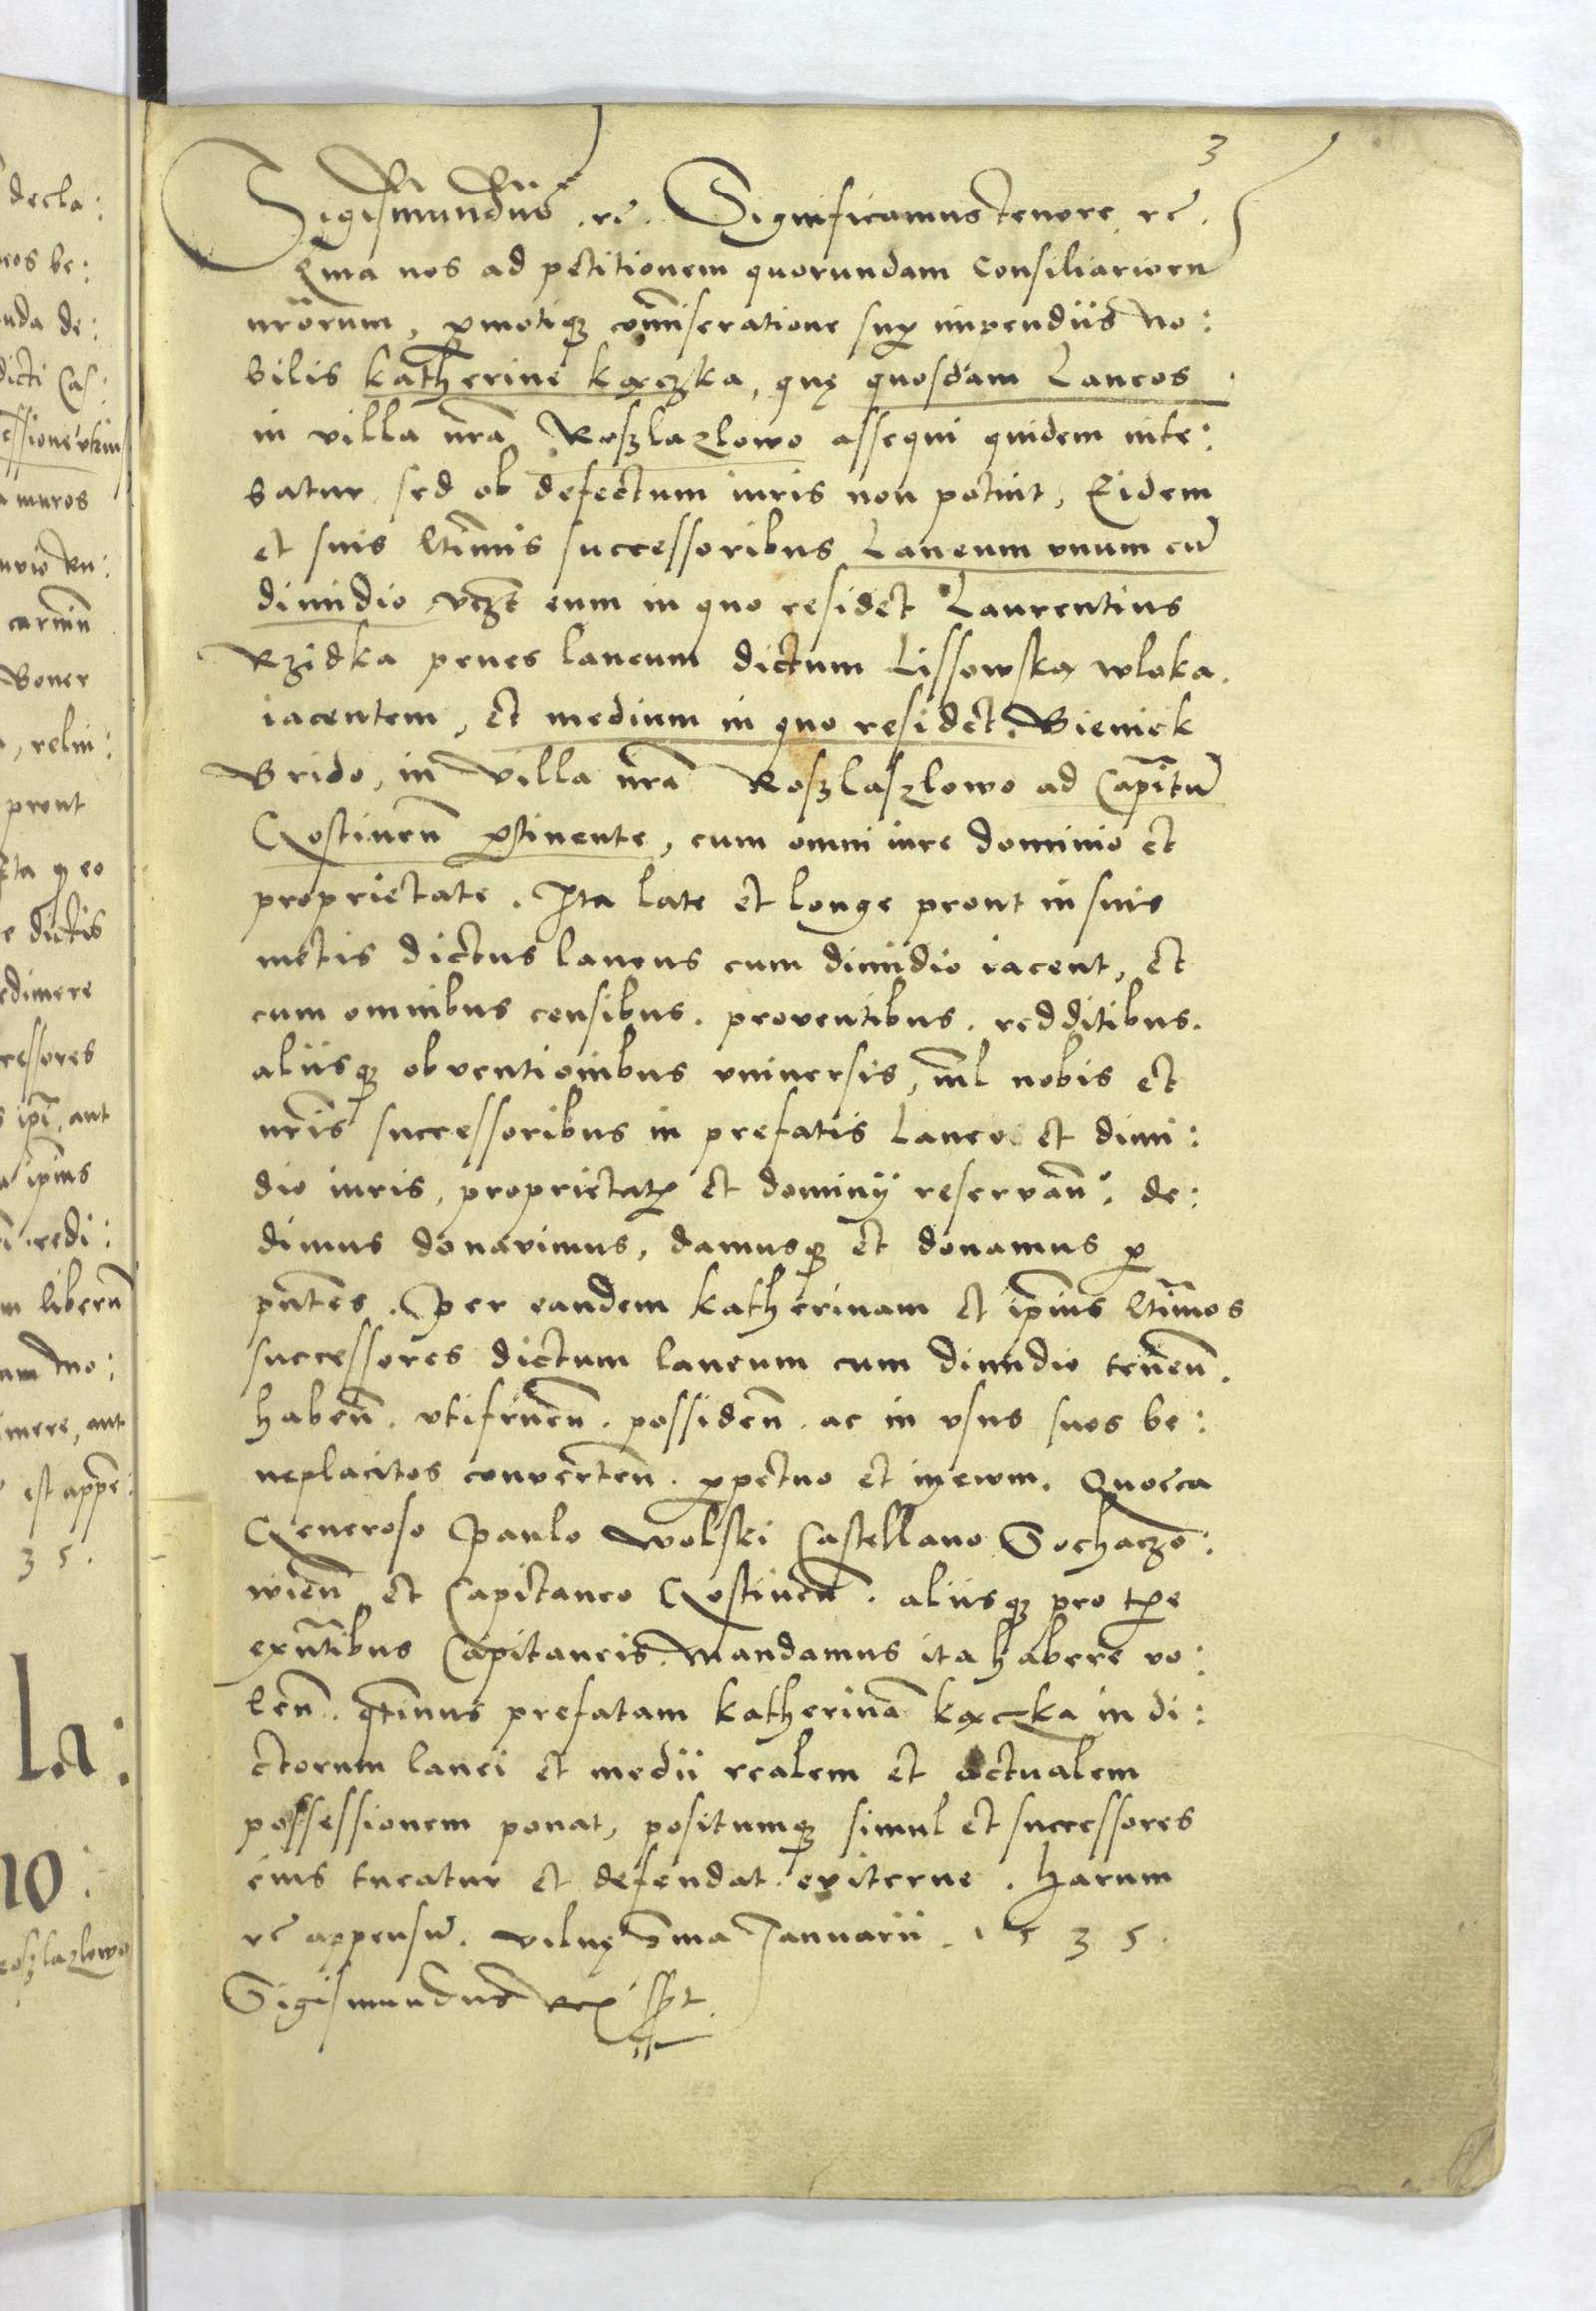 3
Sigismundus .rc. Significamus tenore rc.
Qina nos ad petitionem quorundam Consiliariorū
nr̄orum, ꝑmotiqꝫ com̄iseratione suꝑ impendiis No:
bilis Katherine Kączka, quę quosdam Laneos
in villa nr̄a Roszlazlowo assequi quidem nite:
batur sed ob defectum iuris non potuit, Eidem
et suis ltīmis successoribus Laneum vnum cū
dimidio vꝫt eum in quo residet Laurentius
Rzidka penes laneum dictum Lissowska wloka.
iacentem, et medium in quo residet Bieniek
Brido, in villa nr̄a Roszlaszlowo ad Capītū
Gostinen̄ ꝑtinente, cum omni iure dominio et
proprietate. Ita late et longe prout in suis
metis dictus laneus cum dimidio iacent, et
cum omnibus censibus. proventibus. redditibus.
aliisqꝫ obventionibus vniversis, nīl nobis et
nr̄is successoribus in prefatis Laneo et dimi:
dio iuris, proprietatꝭ et dominij reservan̄: de:
dimus donavimus, damusqꝫ et donamus ꝑ
pn̄tes. Per eandem Katherinam et ip̄ius ltīmos
successores dictum laneum cum dimidio tenen̄.
haben̄. vtifruen̄. possiden̄. ac in vsus suos be:
neplacitos converten̄. ꝑpetuo et in ewm. Quocca
Generoso Paulo Wolski Castellano Sochaczo:
wien̄ et Capitaneo Gostinen̄. aliisqꝫ pro tꝑe
exn̄tibus Capitaneis. Mandamus ita habere vo:
len̄. qtīnus prefatam Katherinā Kączka in di:
ctorum lanei et medii realem et actualem
possessionem ponat, positumqꝫ simul et successores
eius tueatur et defendat eviterne. Harum
rc appensū. Vilnę Ianuarii. 1535.
Sigismundus Rex sſpt